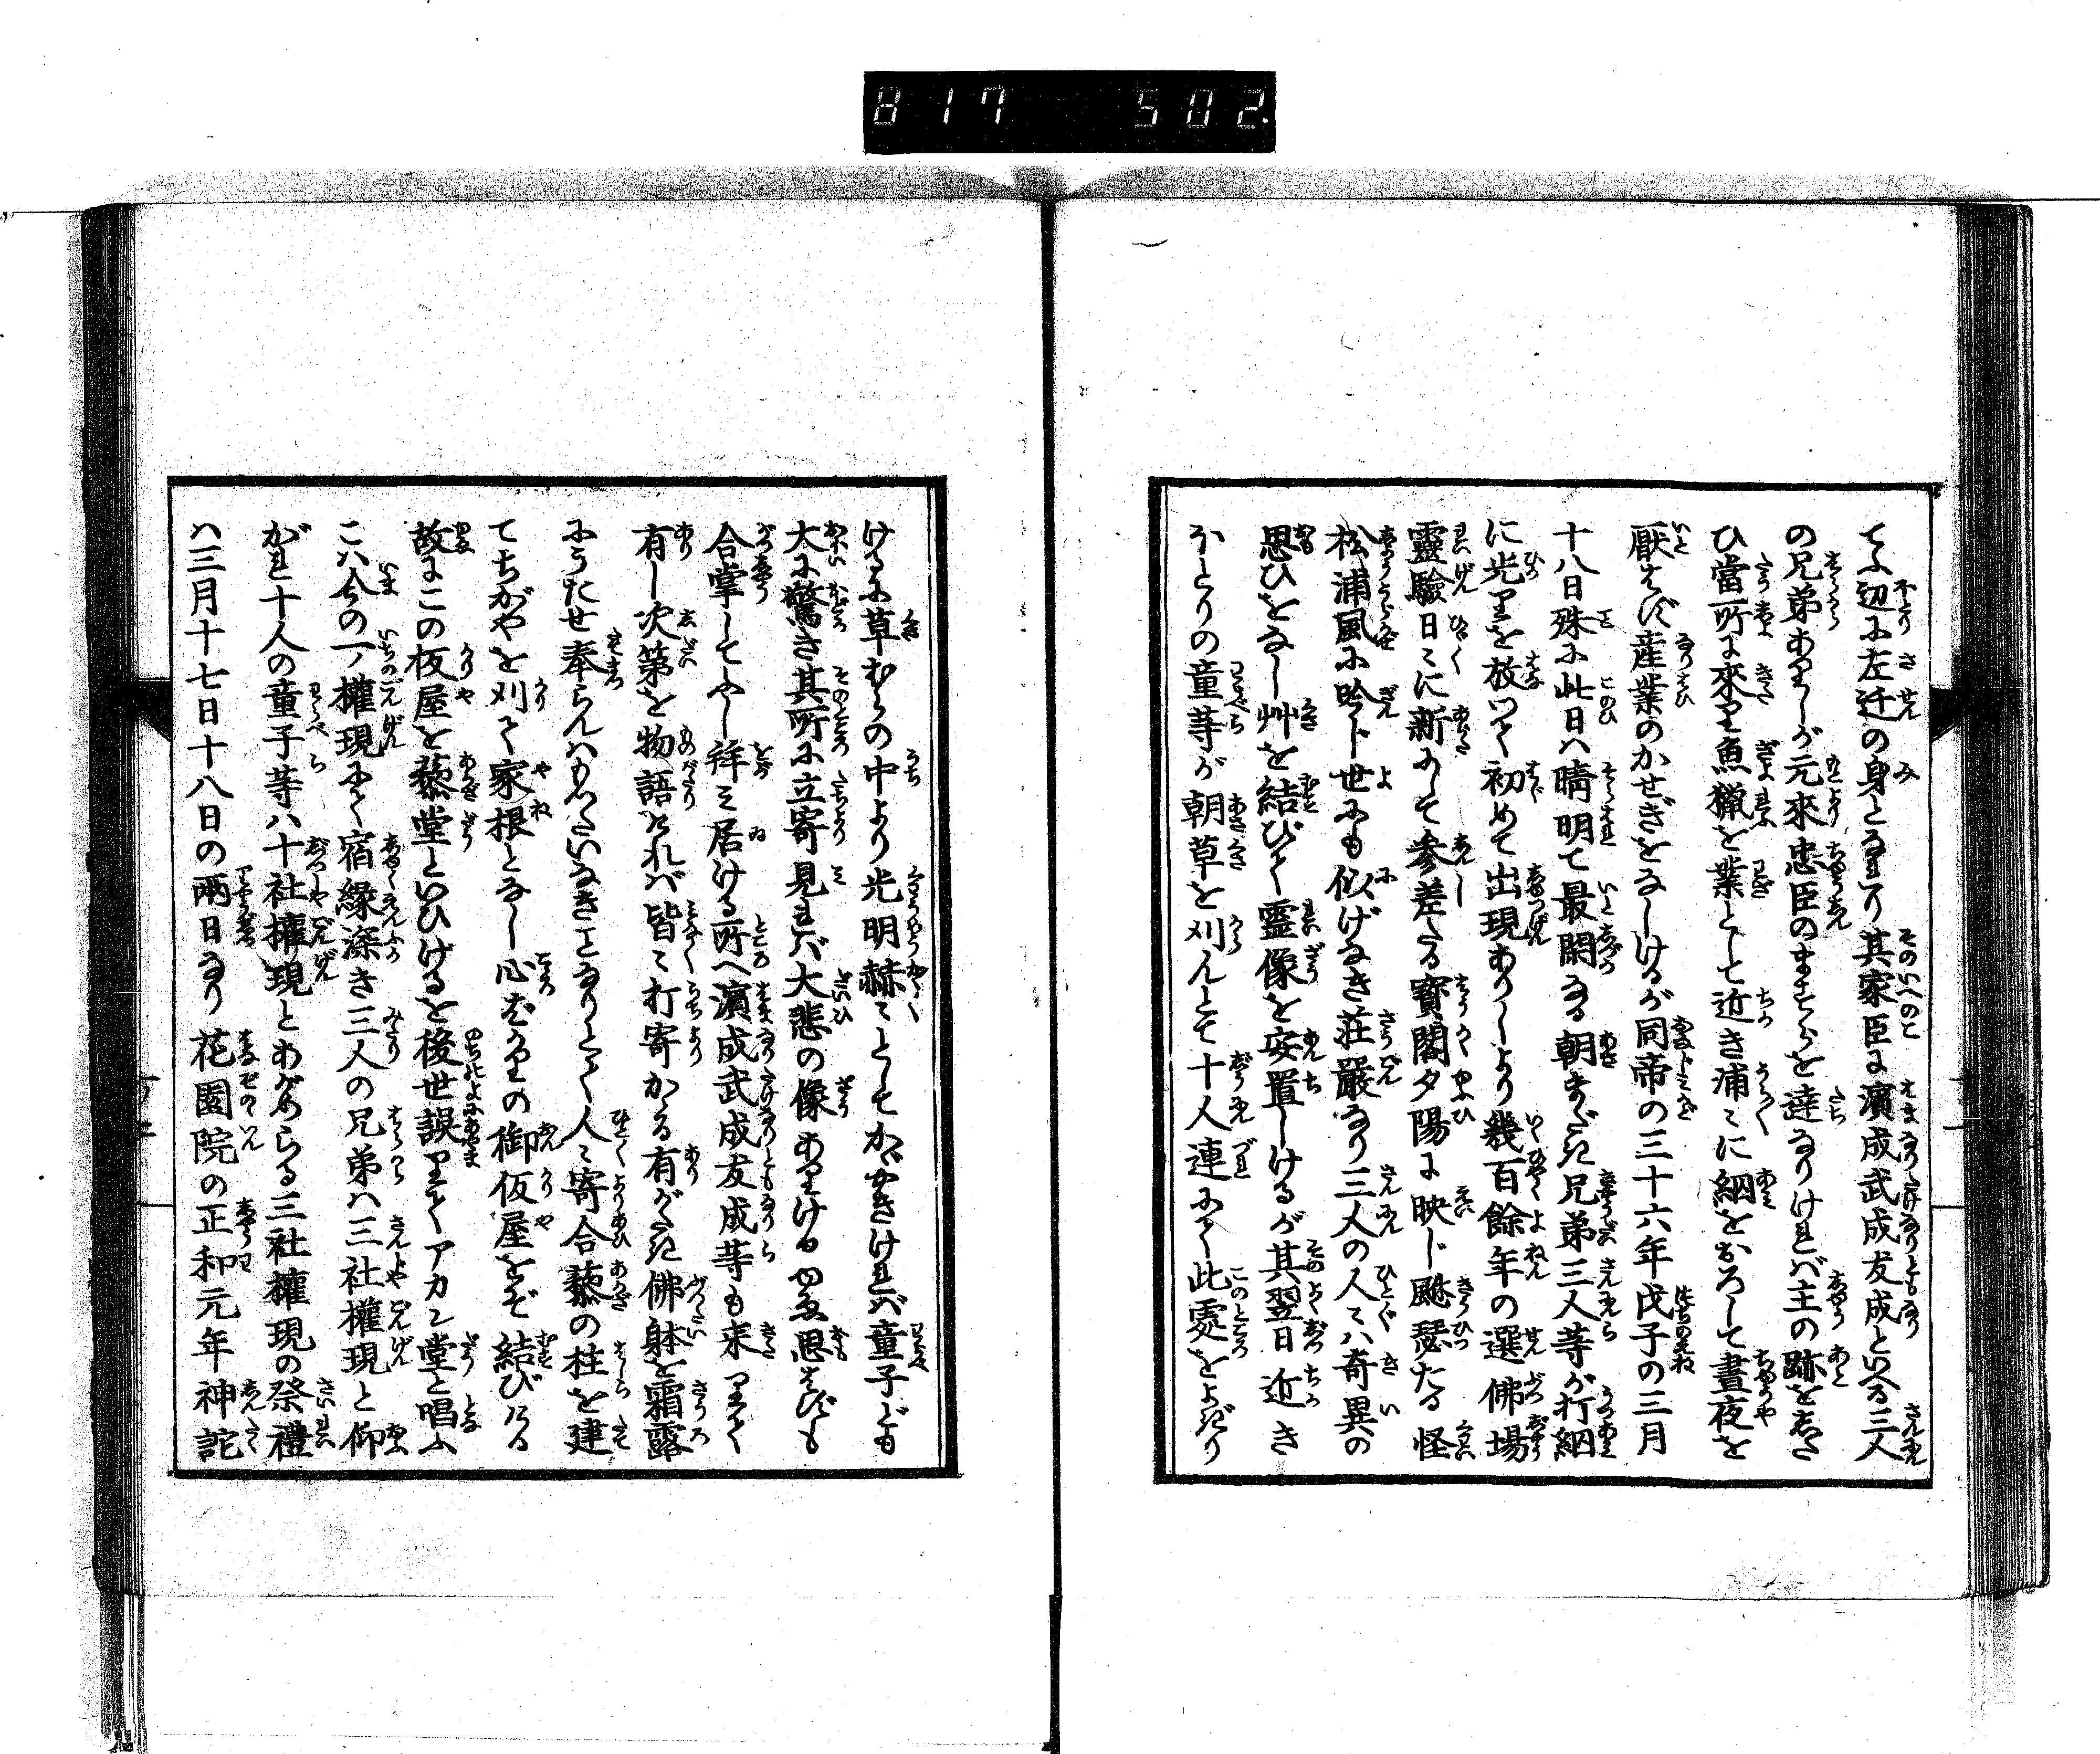 817 502
てふ辺に左迁の身となれり其家臣に濱成武成友成といへる三人
の兄弟ありしが元來忠臣のますらを達なりければ主の跡をした
ひ當所に來り魚猟を業として近き浦〻に網をおろして晝夜を
厭はず産業のかせぎをなしけるが同帝の三十六年戊子の三月
十八日殊に此日ハ晴明て最閑なる朝まだき兄弟三人等が打網
に光りを放つて初めて出現ありしより幾百餘年の選佛場
靈驗日〻に新にして参差たる寳閣夕陽に映じ颼瑟たる怪
松浦風に吟じ世にも似げなき荘嚴なり三人の人〻ハ奇異の
思ひをなし艸を結びて霊像を安置しけるが其翌日近き
ほとりの童等が朝草を刈んとて十人連にて此處をよぎり
けるに草むらの中より光明赫〻としてかゞやきければ童子ども
大に驚き其所に立寄見れバ大悲の像ありけるゆゑ思はずも
合掌してやし拜ミ居ける所へ濱成武成友成等も来りて
有し次第を物語けれバ皆〻打寄かゝる有がたき佛躰を霜露
にうたせ奉らんハもつたいなきことなりとて人〻寄合藜の柱を建
てちがやを刈て家根となし心ばかりの御仮屋をぞ結びける
故にこの仮屋を藜堂といひけるを後世誤りてアカン堂と唱ふ
こハ今の一ノ權現にて宿緣深き三人の兄弟ハ三社權現と仰
がれ十人の童子等ハ十社權現とあがめらる三社權現の祭禮
ハ三月十七日十八日の兩日なり花園院の正和元年神詫